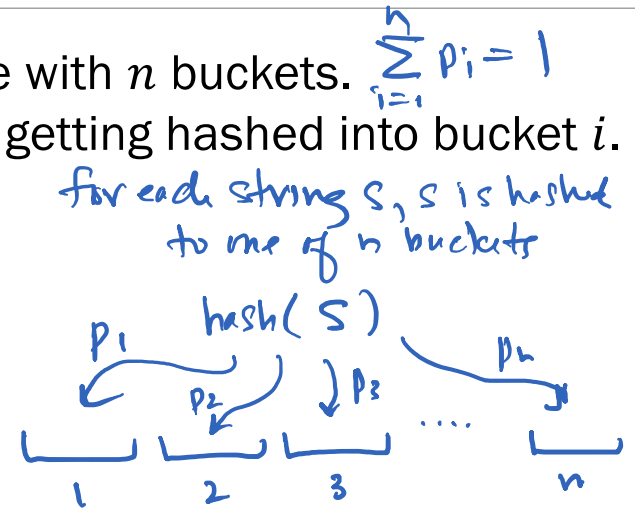 e with n buckets. \sum_{i=1}^{n} p_i = 1
getting hashed into bucket i.
for each string S, S is hashed
to one of n buckets
hash(S)
p_1 p_2 p_3 .... p_n
1 2 3 n